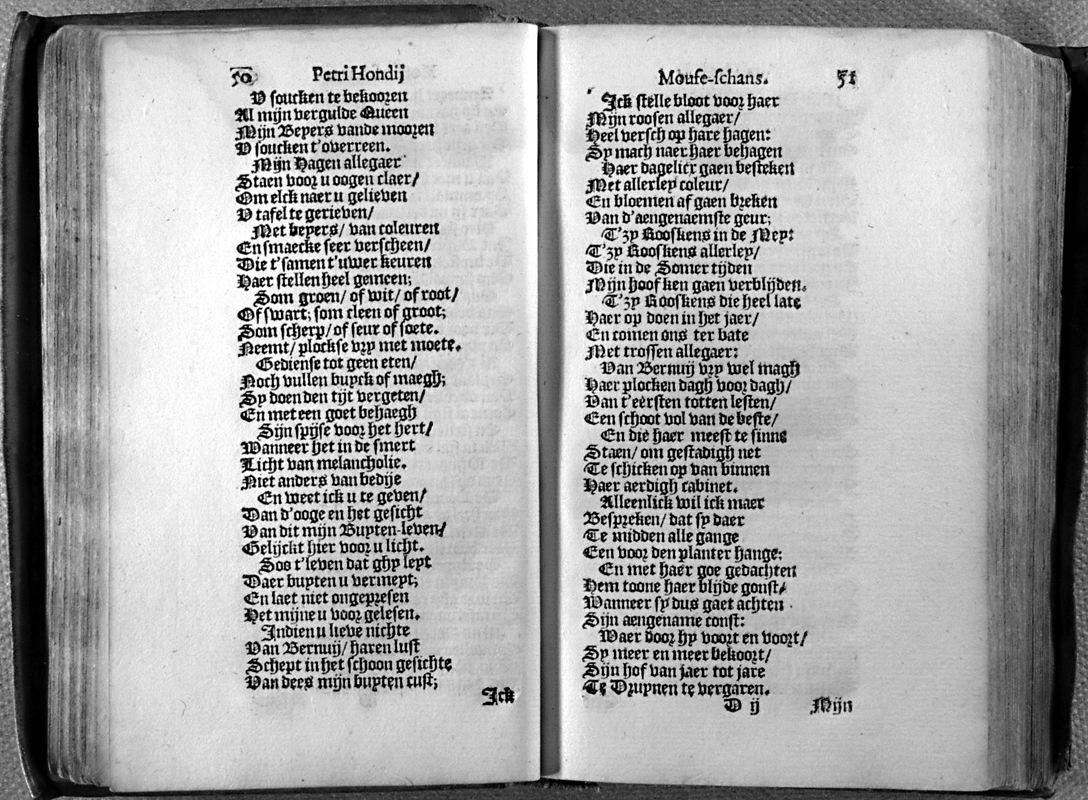 50 Petri Hondij
V soucken te bekooren
Al mijn vergulde Queen
Mijn Beyers vande mooren
V soucken t'overreen.
Mijn Hagen allegaer
Staen voor u oogen claer/
Om elck naer u gelieven
V tafel te gerieven/
Met beyers/ van coleuren
En smaecke seer verscheen/
Die t'samen t'uwer keuren
Haer stellen heel gemeen;
Som groen/ of wit/ of root/
Of swart; som cleen of groot;
Som scherp/ of seur of soete.
Neemt/ plockse vry met moete.
Gediense tot geen eten/
Noch vullen buyck of maegh;
Sy doen den tijt vergeten/
En met een goet behaegh
Sijn spijse voor het hert/
Wanneer het in de smert
Licht van melancholie.
Niet anders van bedije
En weet ick u te geven/
Dan d'ooge en het gesicht
Van dit mijn Buyten-leven/
Gelijckt hier voor u licht.
Soo t'leven dat ghy leyt
Daer buyten u vermeyt;
En laet niet ongepresen
Het mijne u voor gelesen.
Indien u lieve nichte
Van Bernuij/ haren lust
Schept in het schoon gesichte
Van dees mijn buyten rust;
Ick
Mouse-schans. 51
Ick stelle bloot voor haer
Mijn roosen allegaer/
Heel versch op hare hagen:
Sy mach naer haer behagen
Haer dagelicx gaen besteken
Met allerley coleur/
En bloemen af gaen breken
Van d'aengenaemste geur;
T'zy Rooskens in de Mey:
T'zy Rooskens allerley/
Die in de Somer tijden
Mijn hoof ken gaen verblijden.
T'zy Rooskens die heel late
Haer op doen in het jaer/
En comen ons ter bate
Met trossen allegaer:
Van Bernuij vry wel magh
Haer plocken dagh voor dagh/
Van t'eersten totten lesten/
Een schoot vol van de beste/
En die haer meest te sinne
Staen/ om gestadigh net
Te schicken op van binnen
Haer aerdigh cabinet.
Alleenlick wil ick maer
Bespreken/ dat sy daer
Te midden alle gange
Een voor den planter hange:
En met haer goe gedachten
Hem toone haer blijde gonst/
Wanneer sy dus gaet achten
Sijn aengename const:
Waer door hy voort en voort/
Sy meer en meer bekoort/
Sijn hof van jaer tot jare
Te Druynen te vergaren.
D ij Mijn